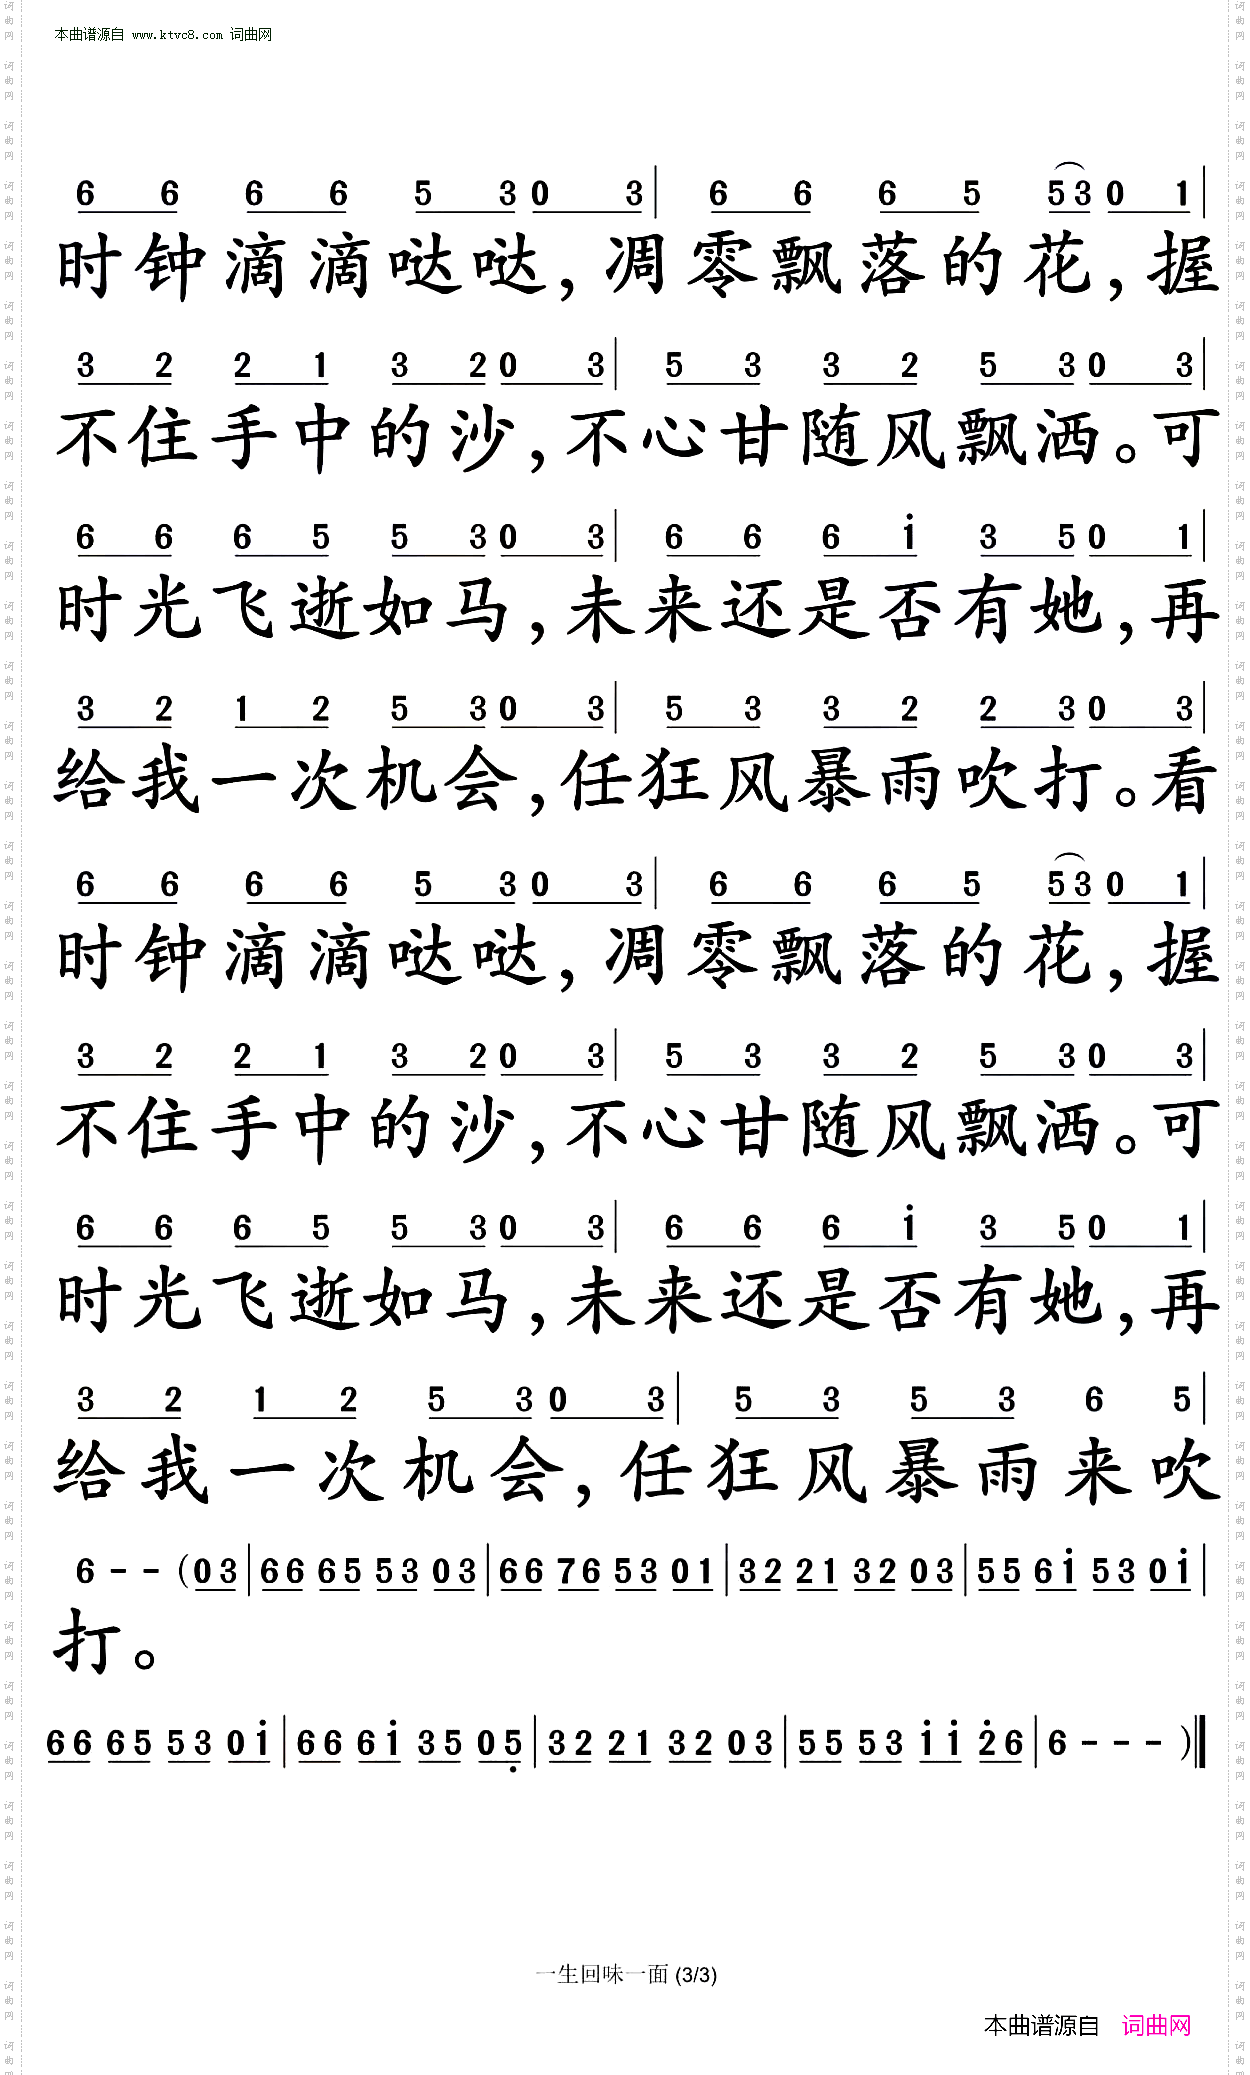 本曲谱源自 www.ktvc8.com 词曲网
6 6 6 6 5 3 0 3 | 6 6 6 5 5 3 0 1 |
时钟滴滴哒哒,凋零飘落的花,握
3 2 2 1 3 2 0 3 | 5 3 3 2 5 3 0 3 |
不住手中的沙,不心甘随风飘洒。可
6 6 6 5 5 3 0 3 | 6 6 6 i 3 5 0 1 |
时光飞逝如马,未来还是否有她,再
3 2 1 2 5 3 0 3 | 5 3 3 2 2 3 0 3 |
给我一次机会,任狂风暴雨吹打。看
6 6 6 6 5 3 0 3 | 6 6 6 5 5 3 0 1 |
时钟滴滴哒哒,凋零飘落的花,握
3 2 2 1 3 2 0 3 | 5 3 3 2 5 3 0 3 |
不住手中的沙,不心甘随风飘洒。可
6 6 6 5 5 3 0 3 | 6 6 6 i 3 5 0 1 |
时光飞逝如马,未来还是否有她,再
3 2 1 2 5 3 0 3 | 5 3 5 3 6 5 |
给我一次机会,任狂风暴雨来吹
6 - - (0 3 | 6 6 6 5 5 3 0 3 | 6 6 7 6 5 3 0 1 | 3 2 2 1 3 2 0 3 | 5 5 6 i 5 3 0 i |
打。
6 6 6 5 5 3 0 i | 6 6 6 i 3 5 0 5̣ | 3 2 2 1 3 2 0 3 | 5 5 5 3 i i 2̇ 6 | 6 - - - )‖
一生回味一面 (3/3)
本曲谱源自 词曲网